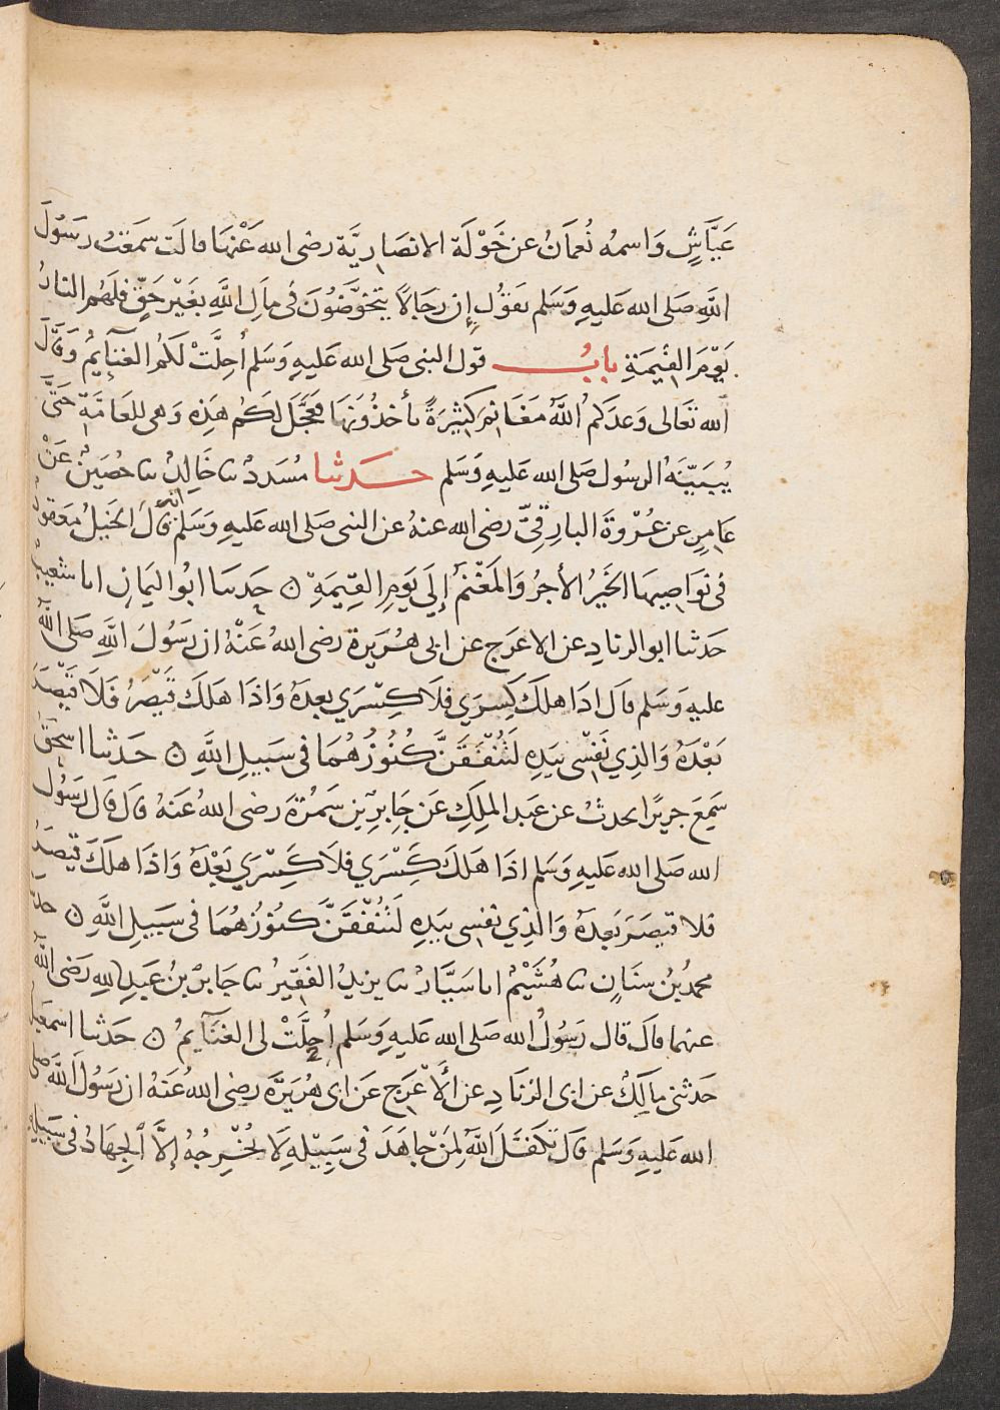 عَيَّاشٍ وَاسمهُ نُعمَانُ عن خَوْلَة الانصَاريَّة رضى الله عَنْهَا قالَت سَمعْتُ رسُولَ
اللَّهِ صَلى الله عَليهِ وَسَلم يقوُل إن رجَالاً يتخوَّضُونَ فى مَالِ اللَّهِ بغَيْر حَقٍّ فلهُم النارُ
يَوْمَ القِيٰمَةِ بابُ قول النبى صَلى الله عَليهِ وَسَلم أُحِلَّتْ لكمُ الغنآيمُ وَقَالَ
الله تعَالى وَعدَكمُ اللَّهُ مغَانمَ كثِيرَةً تأخذُونهَا فعَجَّلَ لكُم هَذِهِ وَهى للعَامَّةِ حَتَّى
يُبَيّنَهُ الرسُول صَلى الله عَليهِ وَسَلم حدثنا مُسَددٌ ثنا خَالِدٌ ثنا حُصَينٌ عَنْ
عَامرٍ عن عُرْوةَ البارِقىّ رضى الله عنهُ عن النبى صَلى الله عَليهِ وَسَلم انه قَالَ الخيلُ مَعقودٌ
فى نوَاصِيهَا الخَيرُ الأجرُ وَالمَغْنمُ إلَى يَومِ القِيٰمَةِ ن حَدثنا ابُو اليَمَانِ انا شعَيبٌ
حَدثنا ابو الزنادِ عن الاعرَج عن ابى هُرَيرة رضى اللهُ عَنْهُ ان رَسُولَ اللَّهِ صَلى اللَّه
عليهِ وَسَلم قالَ اذَا هلَكَ كِسرَي فلَا كِسْرَي بعدَهُ وَاذَا هَلَكَ قَيْصَرُ فَلَا قَيْصَرَ
بَعْدَهُ وَالذِي نَفْسى بيَدِهِ لَتُنْفَقَنَّ كُنُوزُهُمَا فى سَبيلِ اللَّهِ ن حَدثنا اسحٰقُ
سَمِعَ جريرًا يحدثُ عن عبَد الملِكِ عَن جَابرِ بْن سَمُرَةَ رضى اللهُ عنهُ قالَ قالَ رسُول
الله صَلى الله عَليهِ وَسَلم اذَا هَلكَ كَِسْرَي فلَا كَِسْرَي بَعْدَهُ وَاذَا هلكَ قيصَرُ
فلا قيصَرَ بعدَهُ وَالذِي نفسِى بيَدِهِ لَتُنْفَقَنَّ كنُوزُهُمَا فى سَبيلِ اللَّهِ ن حدثنا
محمدُ بْن سنَانٍ ثنا هُشَيْمٌ انا سَيَّارٌ ثنا يزيدُ الفَقِيرُ ثنا جَابرُ بْنُ عَبدِ اللهِ رَضى اللَّه
عنهما قالَ قال رَسُولُ الله صَلى الله عَليهِ وَسَلم أحِلَّتْ لى الغَنَآيمُ ن حَدثنا اسمعيل
حَدثنى مَالِكٌ عن ابى الزنَادِ عن الأعْرَج عَن ابى هُرَيرَة رضى اللهُ عَنهُ ان رَسُولَ اللَّه صَلى
الله عَليهِ وَسَلم قالَ تكَفَّلَ اللَّهُ لِمَنْ جاهَدَ فى سَبِيْلهِ لَا يُخْرِجُهُ إلَّا الجِهَادُ فى سَبيلِهِ